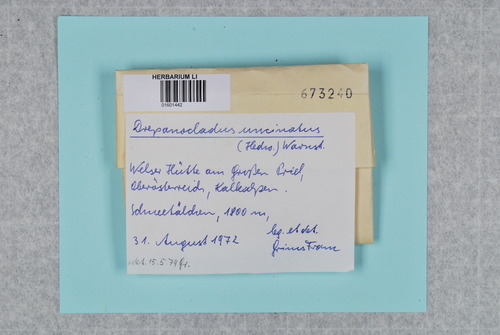 HERBARIUM LI
01601442
673240
Drepanocladus uncinatus
(Hedw.) Warnst.
Welser Hütte am Großen Priel,
Oberösterreich, Kalkalpen.
Schneetälchen, 1800 m,
31. August 1972 leg. et det.
Grims Franz
15.5.79